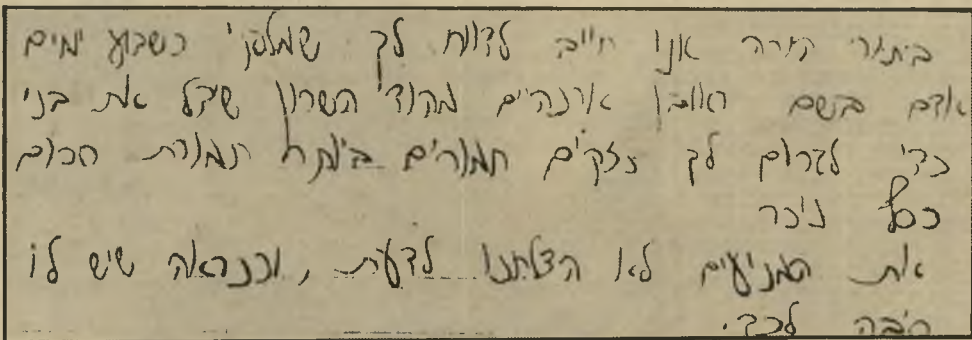 ביתור קורה אני חייב לדווח לך שמלפני כשבוע ימים
אדם בשם ראובן אורנהיים מהוד השרון שיכל את בני
כדי לגרום לך נזקים חמורים ביותר תמורת סכום
כסף ניכר
את המניעים לא הצלחנו לדעת, וכנראה שיש לו
סיבה לכך.